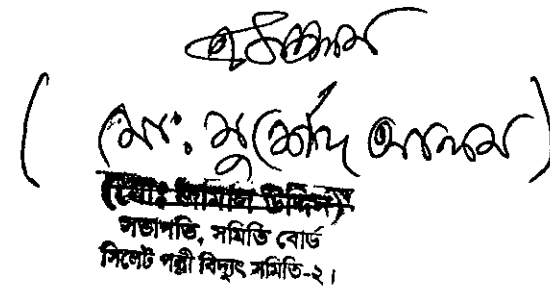 (মো: মুর্শেদ আলম)
(মোঃ জামাল উদ্দিন)
সভাপতি, সমিতি বোর্ড
সিলেট পল্লী বিদ্যুৎ সমিতি-২।